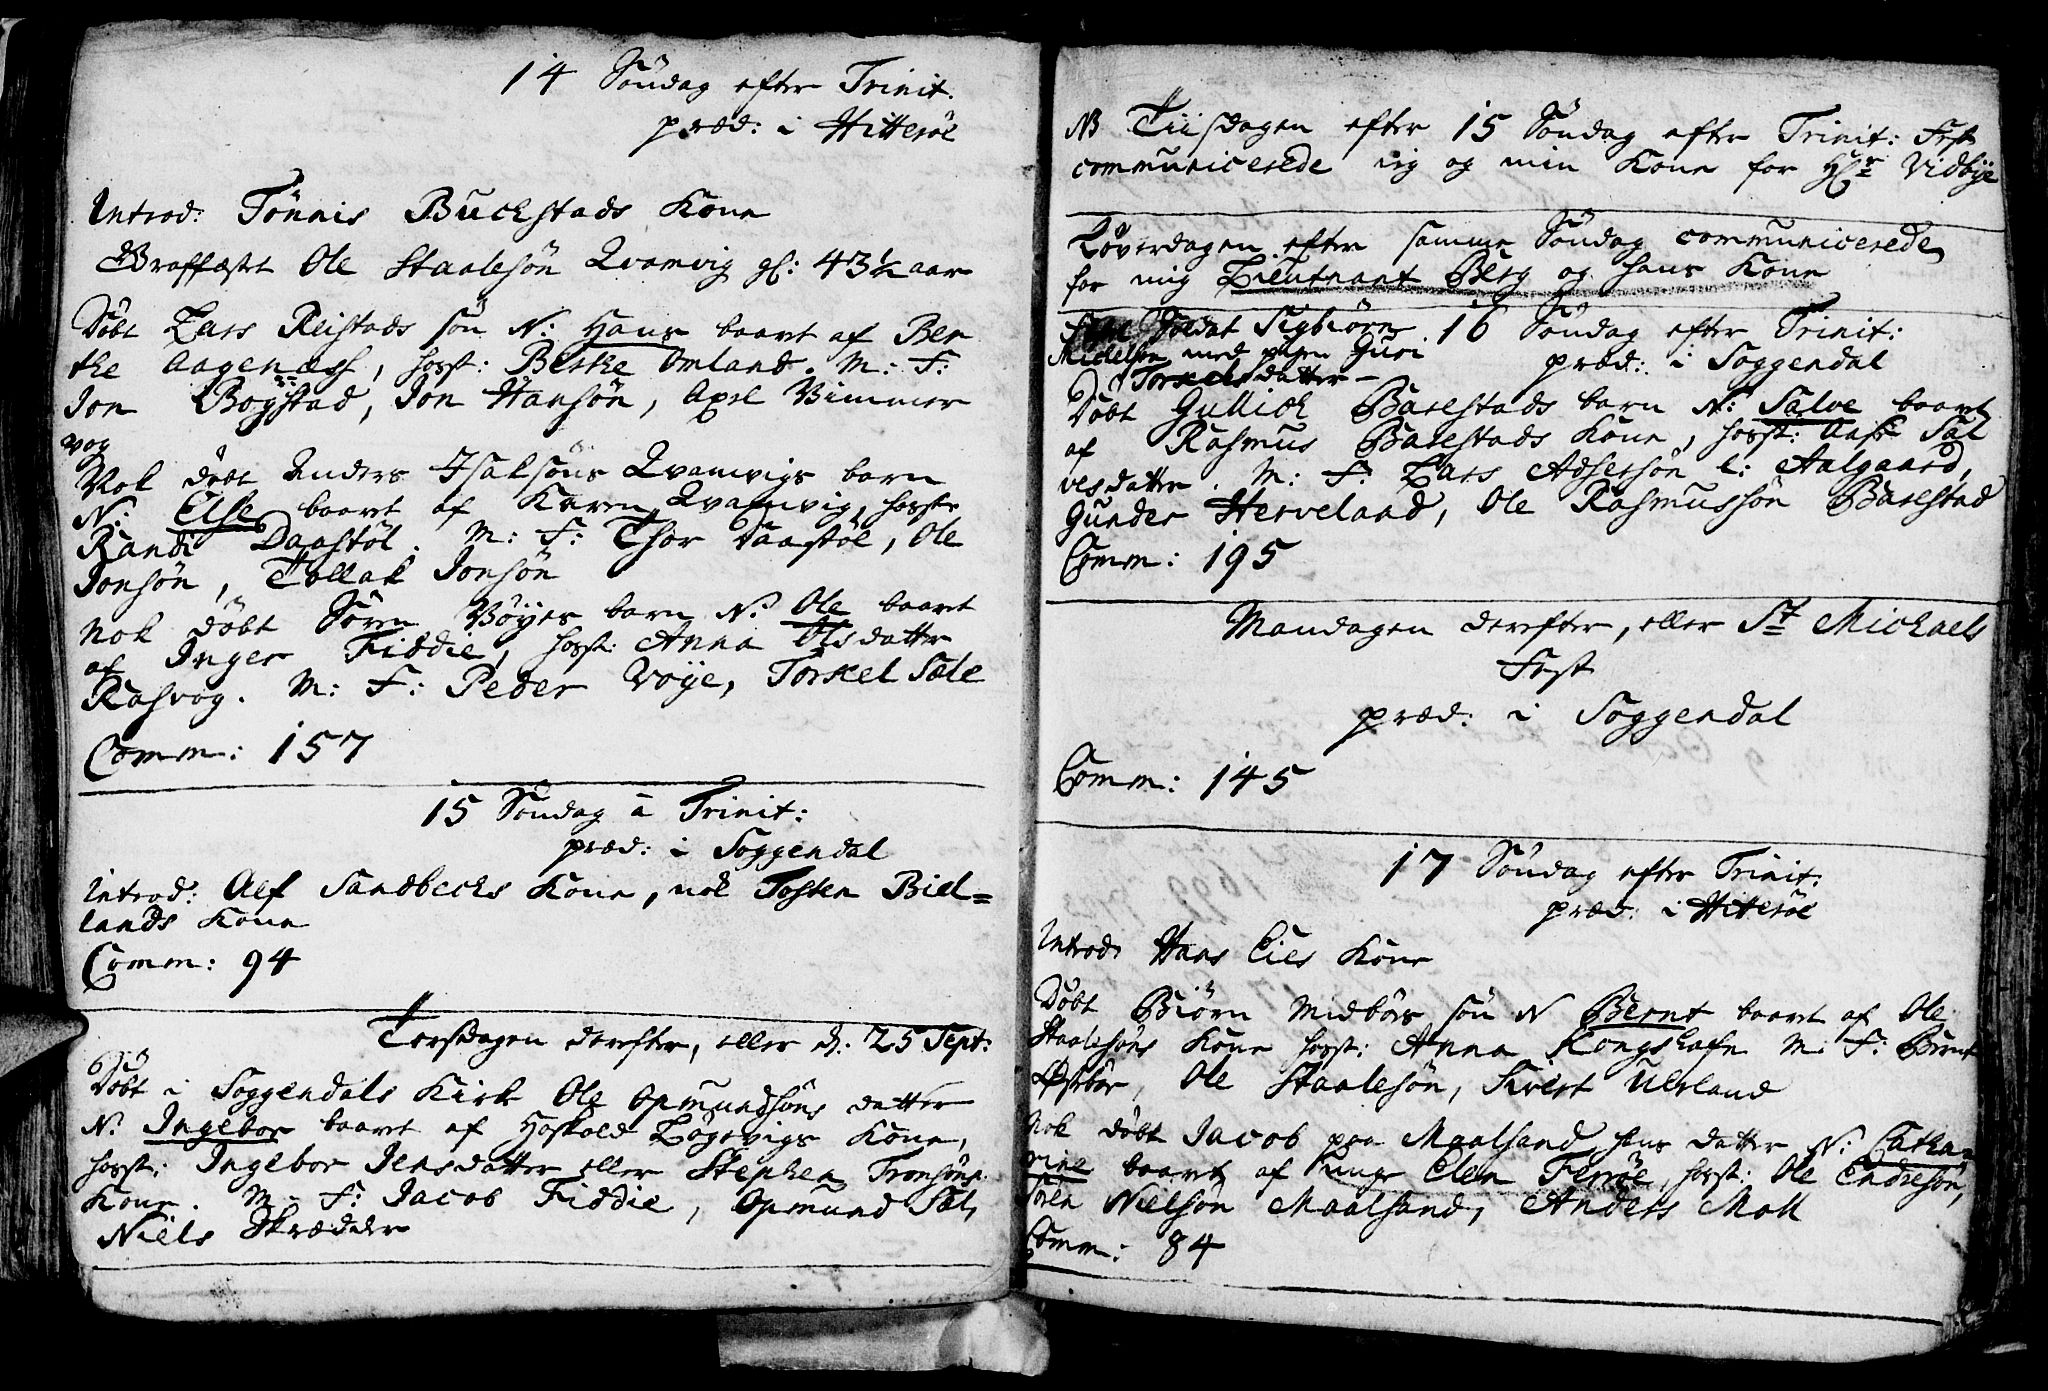 14 Søndag efter Trinit:
præd: i Hitterøe
Introd: Tønnis Buchstads Kone
Graffæstet Ole Staalesøn Qvamvig gl: 43½ aar
Døbt Lars Reistads søn N: Hans baaret af Ber
the Aagenæss, host: Berthe Omland. M: F:
Jon Bogstad, Jon Hansøn, Axel Vimmer
vog
Nok døbt Anders Isaksøns Qvamvigs barn
N: Else baaret af Karen Qvamvig, hosste
Randi Daastøl. M: F: Thor Daastøl, Ole
Jonsøn, Tollak Jonsøn
Nok døbt Søren Vøyes barn N: Ole baaret
af Inger Fiddie, host: Anna Olsdatter
Rasvog. M: F: Peder Vøye, Torkel Sæle
Comm: 157
15 Søndag a Trinit:
præd: i Soggendal
Introd: Alf Sandbechs Kone, nok Tosten Biel=
lands Kone
Comm: 94
Torsdagen derefter, eller d: 25 Sept:
Døbt i Soggendals Kirk Ole Opmundsøns datter
N: Ingebor baaret af Hoskold Løgevigs Kone,
host: Ingebor Jensdatter eller Stephen Tronsøns
Kone. M: F: Jacob Fiddie, Opmund Sæl,
Niels Skrædder
NB Tiisdagen efter 15 Søndag efter Trinit: Fest
communicerede jeg og min Kone for Hr Vidbye
Løverdagen efter samme Søndag communicerede
for mig Lieutnant Berg og hans Kone
Soldat Sigbiørn 16 Søndag efter Trinit:
Midelsen med pigen Guri præd: i Soggendal
Torkelsdatter –
Døbt Gullich Barstads barn N: Salve baaret
af Rasmus Barstads Kone, host: Aase Sal
vesdatter. M: F: Lars Adsersøn l: Aalgaard,
Gunder Herveland, Ole Rasmussøn Barstad
Comm: 195
Mandagen derefter, eller St Michaels
Fest
præd: i Soggendal
Comm: 145
17 Søndag efter Trinit:
præd: i Hitterøe
Introd: Hans Eies Kone
Døbt Biørn Midbøes søn N Bernt baaret af Ole
Staalesøns Kone host: Anna Kongshafn M: F: Bernt
Østbøe, Ole Staalesøn, Sivert Uerland
Nok døbt Jacob paa Maalsand hans datter N: Catha=
rine baaret af unge Elen Ferrøe, host: Ole Endresøn,
Søren Nielsøn Maalsand, Anders Moll
Comm: 84